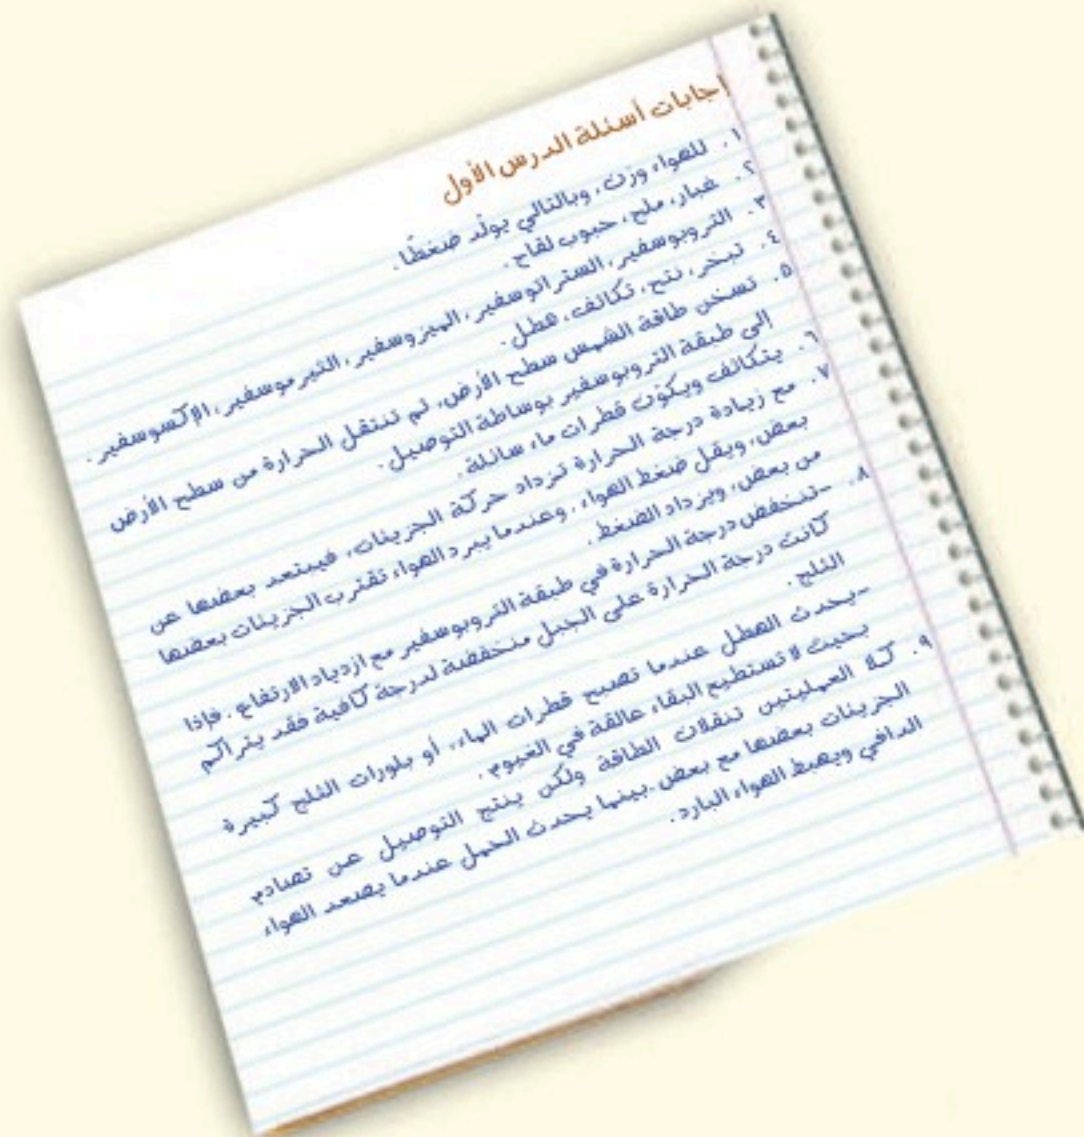 إجابات أسئلة الدرس الأول
١. للهواء وزن، وبالتالي يولّد ضغطًا.
٢. غبار، ملح، حبوب لقاح.
٣. التروبوسفير، الستراتوسفير، الميزوسفير، الثيرموسفير، الإكسوسفير.
٤. تبخر، نتح، تكاثف، هطل.
٥. تسخن طاقة الشمس سطح الأرض، ثم تنتقل الحرارة من سطح الأرض
إلى طبقة التروبوسفير بوساطة التوصيل.
٦. يتكاثف ويكوّن قطرات ماء سائلة.
٧. مع زيادة درجة الحرارة تزداد حركة الجزيئات، فيبتعد بعضها عن
بعض، ويقل ضغط الهواء، وعندما يبرد الهواء تقترب الجزيئات بعضها
من بعض، ويزداد الضغط.
٨. -تنخفض درجة الحرارة في طبقة التروبوسفير مع ازدياد الارتفاع. فإذا
كانت درجة الحرارة على الجبل منخفضة لدرجة كافية فقد يتراكم
الثلج.
-يحدث الهطل عندما تصبح قطرات الماء، أو بلورات الثلج كبيرة
بحيث لا تستطيع البقاء عالقة في الغيوم.
٩. كلا العمليتين تنقلان الطاقة ولكن ينتج التوصيل عن تصادم
الجزيئات بعضها مع بعض. بينما يحدث الحمل عندما يصعد الهواء
الدافي ويهبط الهواء البارد.